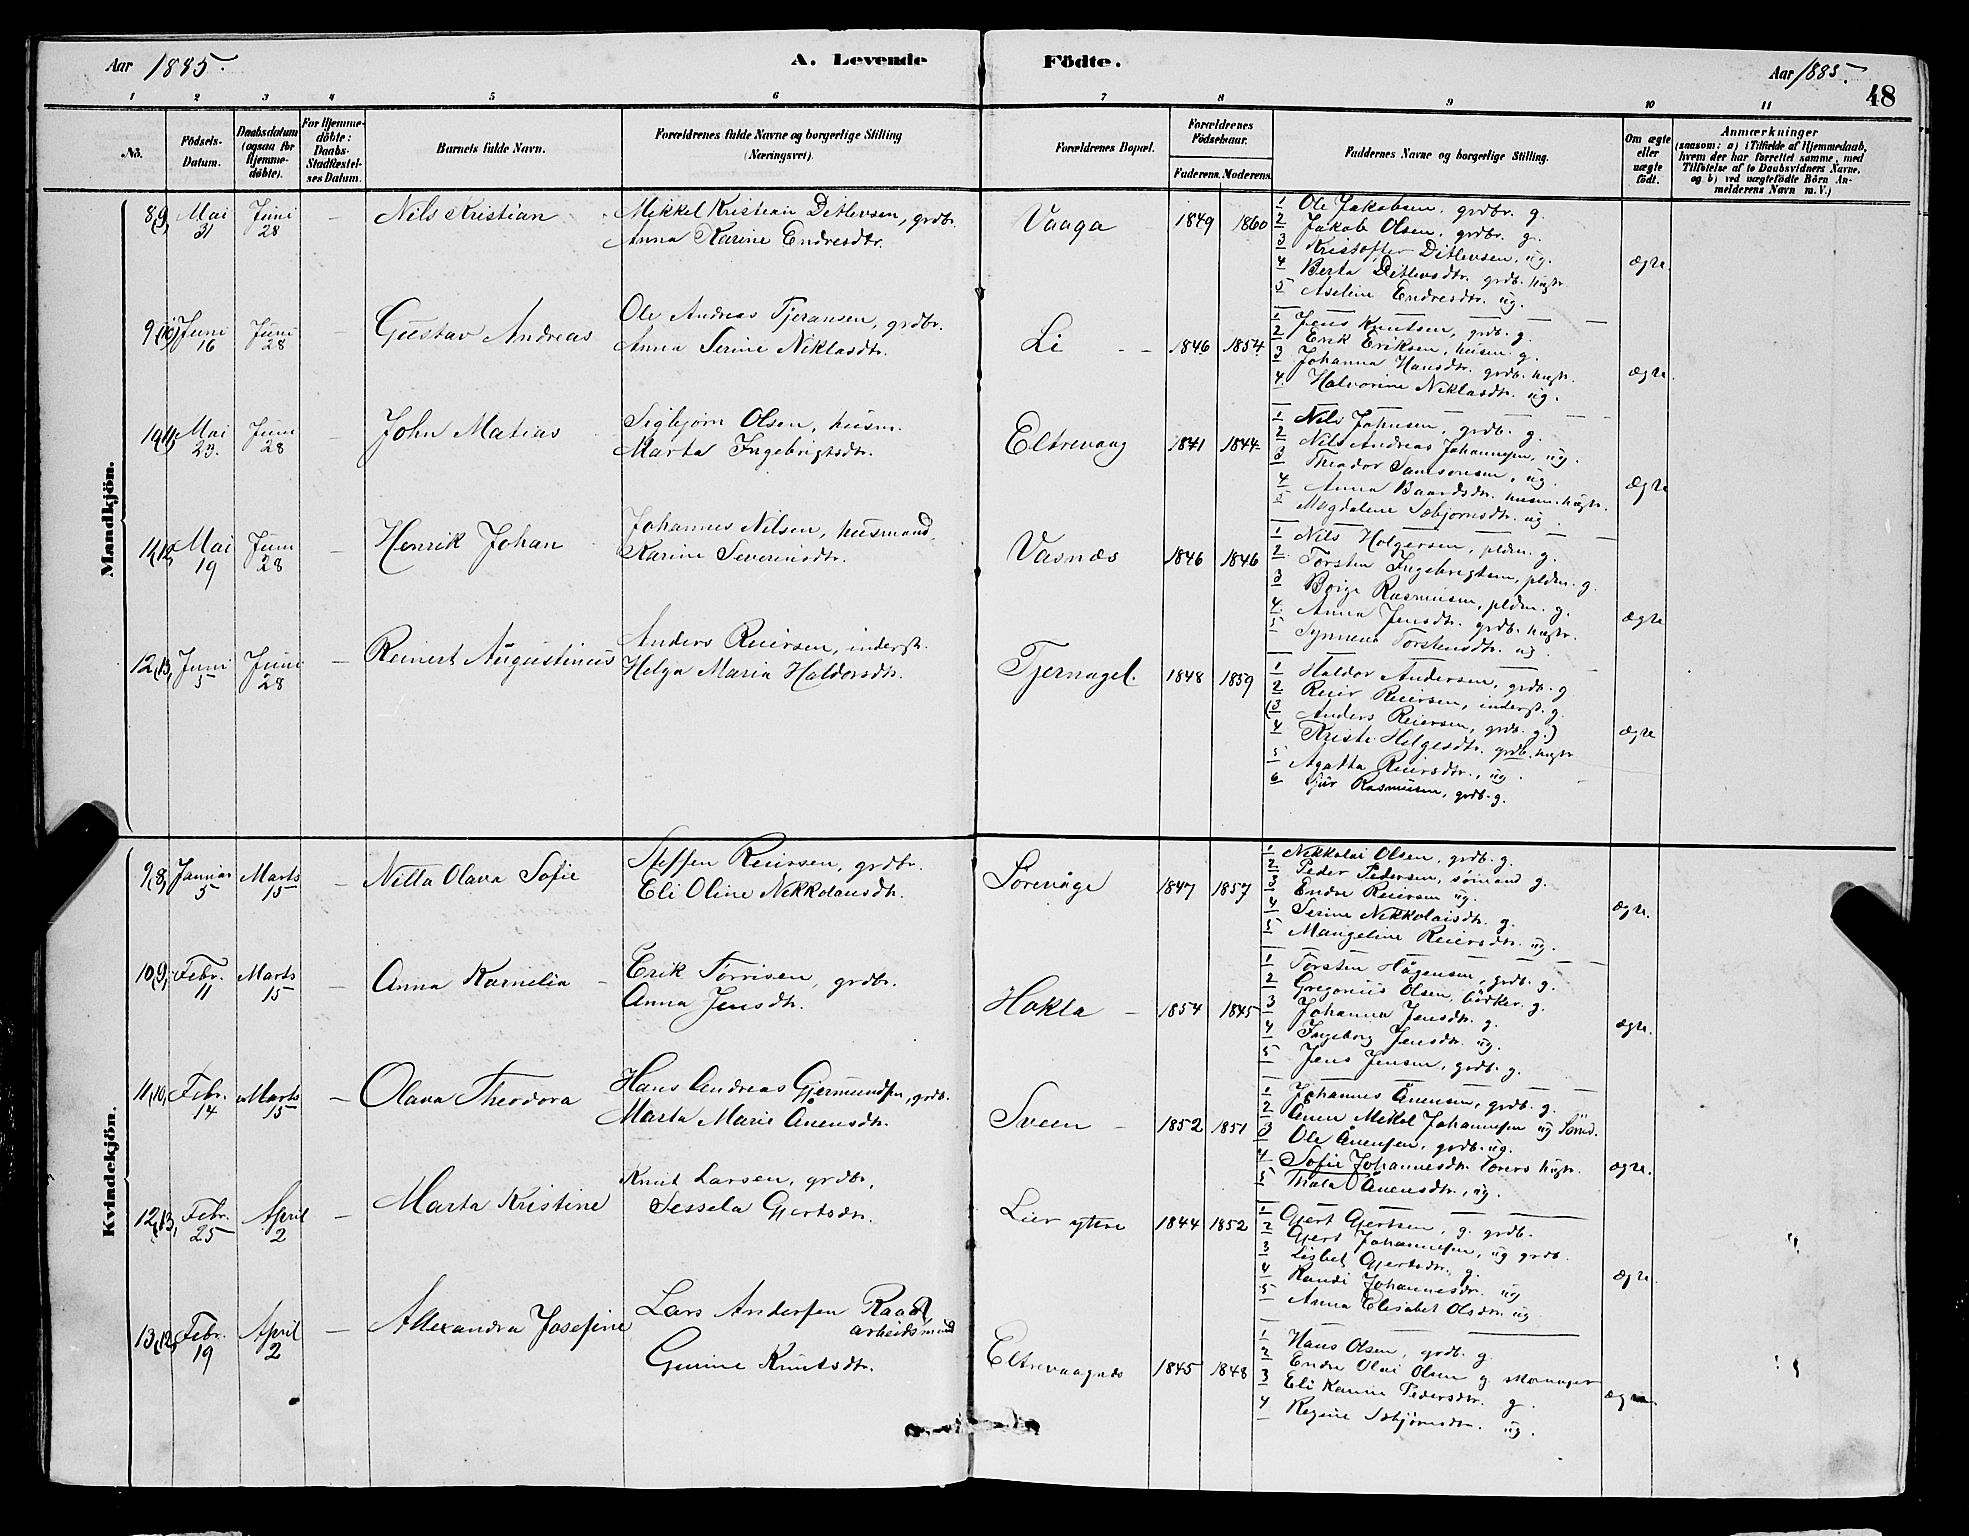 Aar 1885. A. Levende Födte. Aar 1885. 48
1 2 3 4 5 6 7 8 9 10 11
No. Födsels-Datum. Daabsdatum (ogsaa for Hjemme-döbte). For Hjemme-döbte: Daabs-Stadfæstel-ses Datum. Barnets fulde Navn. Forældrenes fulde Navne og borgerlige Stilling (Næringsvei). Forældrenes Bopæl. Forældrenes Födselsaar. Faderens. Moderens. Faddernes Navne og borgerlige Stilling. Om ægte eller uægte födt. Anmærkninger (saasom: a) i Tilfælde af Hjemmedaab, hvem der har forrettet samme, med Tilföielse af to Daabsvidners Navne, og b) ved uægtefödte Börn An-melderens Navn m. V.)
Mandkjön.
8(9) Mai 31 Juni 28 — Nils Kristian Mikkel Kristian Ditlevsen, grdbr. Vaaga 1849 1860 1 Ole Jakobsen, grdbr. g.
Anna Karine Endresdtr. 2 Jakob Olsen, grdbr. g.
3 Kristoffer Ditlevsen, ug.
4 Berta Ditlevsdtr. grdb. hustr. ægte.
5 Aseline Endresdtr. ug.
9(10) Juni 16 Juni 28 — Gustav Andreas Ole Andreas Tjeransen, grdbr. Li 1846 1854 1 Jens Knutsen, grdb. g.
Anna Serine Niklasdtr. 2 Erik Eriksen, husm. g.
3 Johanna Hansdtr. grdb. hustr. ægte.
4. Halvorine Niklasdtr. ug.
10(11) Mai 23. Juni 28 — John Matias Sigbjørn Olsen, husm. Eltrevaag 1841 1844 1 Nils Johnsen, grdb. g.
Marta Ingebrigtsdtr. 2 Nils Andreas Johannessen, ug.
3 Theodor Samsonsen, ug.
4 Anna Baardsdtr. husm. hustr. ægte
5 Magdalene Sebjørnsdtr. ug.
11(12) Mai 19 Juni 28 — Henrik Johan Johannes Nilsen, husmand. Vasnæs 1846 1846 1 Nils Holgersen, pldm. g.
Karine Severinsdtr. 2. Torsten Ingebrigtsen, pldm. g.
3 Børge Rasmussen, pldm. g.
4. Anna Jensdtr. grdb. hustr. ægte
5 Synneva Torstensdtr. ug.
12(13) Juni 5 Juni 28 — Reinert Augustinus Anders Reiersen, inderst. Tjernagel. 1848 1839 1 Haldor Andersen, grdb. g.
Helga Maria Haldorsdtr. 2 Reier Reiersen, inderst. g.
(3 Anders Reiersen, grdb. g.)
4 Kristi Helgesdtr. grdb. hustr ægte
5 Agatha Reiersdtr., ug.
6 Sjur Rasmusen, grdb. g.
Kvindekjön.
9(8) Januar 5 Marts 15 — Nilla Olava Sofie Steffen Reiersen, grdbr. Sørevåge 1847 1857 1 Nikkolai Olsen, grdb. g.
Eli Oline Nikkolaisdtr. 2 Peder Pedersen, sømand g.
3 Endre Reiersen ug.
4 Serine Nikkolaisdtr. g. ægte.
5 Mangeline Reiersdtr. ug.
10(9) Febr. 11 Marts 15 — Anna Kornelia Erik Torrisen, grdbr. Hokla 1854 1845 1 Torsten Hågensen, grdb. g.
Anna Jensdtr. 2 Gregorius Olsen, bödker. g.
3 Johanna Jensdtr. g.
4 Ingeborg Jensdtr. ug. ægte.
5 Jens Jensen, grdb. g.
11(10) Febr. 14 Marts 15 — Olava Theodora Hans Andreas Gjermundsen, grdb. Sveen 1852 1851 1 Johannes Ånensen, grdb. g.
Marta Marie Ånensdtr. 2 Ånen Mikal Johannessen ug
3 Ole Ånensen, grdb. ug.
4 Sofie Johannesdtr. hustr. ægte.
5 Thala Ånensdtr., ug.
12(13) Febr. 25 April 2 — Marta Kristine Knut Larsen, grdbr. Lier ytre 1844 1852 1 Gjert Gjertsen, g. grdb.
Sessela Gjertsdtr. 2 Gjert Johannessen, ug grdb.
3 Lisbet Gjertsdtr. g.
4 Randi Johannesdtr. ug ægte.
5 Anna Elisabet Olsdtr. ug
13(12) Febr. 19 April 2 — Allexandra Josefine Lars Andersen Eltrevaagnæs 1845 1848 1 Hans Olsen, grdb. g.
arbeidsmand 2 Endre Olai Olsen g
Gurine Knutsdtr. 3 Eli Karine Pedersdtr. g. ægte
4 Regine Sebjørnsdtr. ug.